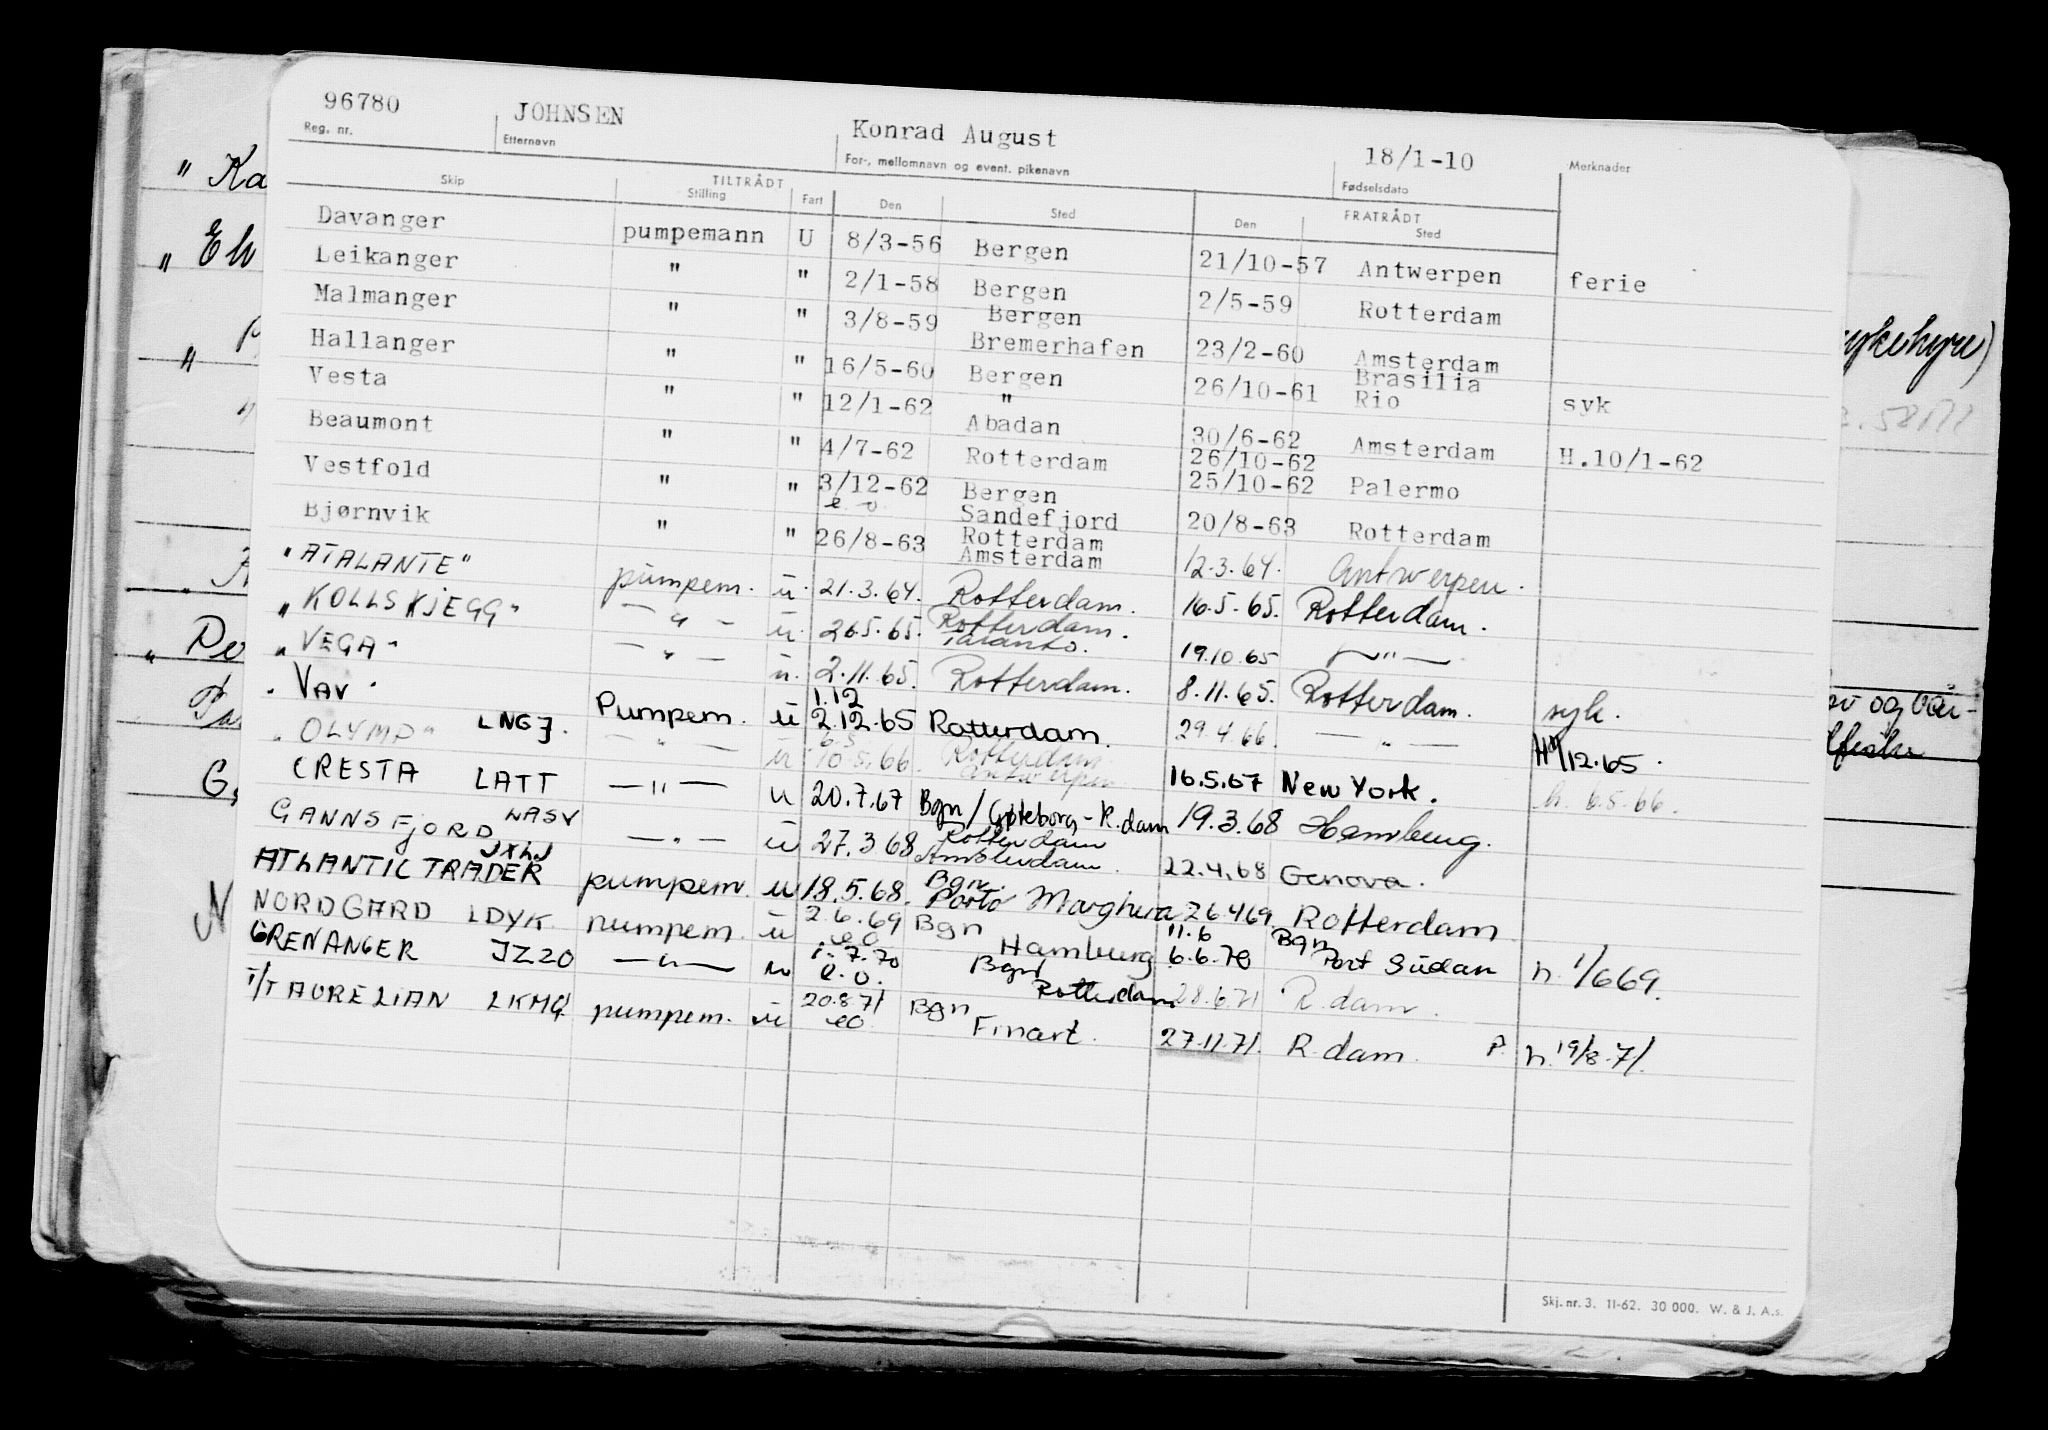 96780 JOHNSEN Konrad August 18/1-10
Reg. nr. Etternavn For-, mellomnavn og event. pikenavn Fødselsdato Merknader
TILTRÅDT FRATRÅDT
Skip Stilling Fart Den Sted Den Sted
Davanger pumpemann U 8/3-56 Bergen 21/10-57 Antwerpen ferie
Leikanger " " 2/1-58 Bergen 2/5-59 Rotterdam
Malmanger " " 3/8-59 Bergen
Bremerhafen 23/2-60 Amsterdam
Hallanger " " 16/5-60 Bergen 26/10-61 Brasilia
Rio syk
Vesta " " 12/1-62 "
Abadan 30/6-62 Amsterdam H.10/1-62
Beaumont " " 4/7-62 Rotterdam 26/10-62
25/10-62 Palermo
Vestfold " " 3/12-62 Bergen
e o Sandefjord 20/8-63 Rotterdam
Bjørnvik " " 26/8-63 Rotterdam
Amsterdam 12.3.64. Antwerpen.
"ATALANTE" pumpem. u. 21.3.64. Rotterdam. 16.5.65. Rotterdam.
"KOLLSKJEGG" — " — u. 26.5.65. Rotterdam.
Taranto. 19.10.65 — " —
"VEGA" — " — u. 2.11.65. Rotterdam. 8.11.65. Rotterdam. syk.
"VAV" LNGJ. Pumpem. u 1.12
2.12.65 Rotterdam. 29.4.66. — " — 12.65.
"OLYMP" — " — u 6.5
10.5.66. Rotterdam
Antwerpen 16.5.67 New York. h. 6.5.66.
CRESTA LATT — " — u 20.7.67 Bgn/Gøteborg-R.dam 19.3.68 Hamburg.
GANNSFJORD LASV — " — u 27.3.68 Rotterdam
Amsterdam. 22.4.68 Genova.
ATLANTIC TRADER JXLJ pumpem. u 18.5.68. Bgn.
Porto Marghera 26.4.69. Rotterdam
NORDGARD LDYK pumpem. u 2.6.69 Bgn 11.6 Bgn
eo Hamburg 6.6.70 Port Sudan h. 1/6 69.
GRENANGER JZ20 — " — u 1.7.70 Bgn
e.o. Rotterdam 28.6.71 R.dam.
T/T AURELIAN LKMG pumpem. u 20.8.71 Bgn
eo Finart. 27.11.71. R.dam. P. h. 19/8.71.
Skj. nr. 3. 11-62. 30 000. W. & J. A.s.
" Ka
" El
sykehyre)